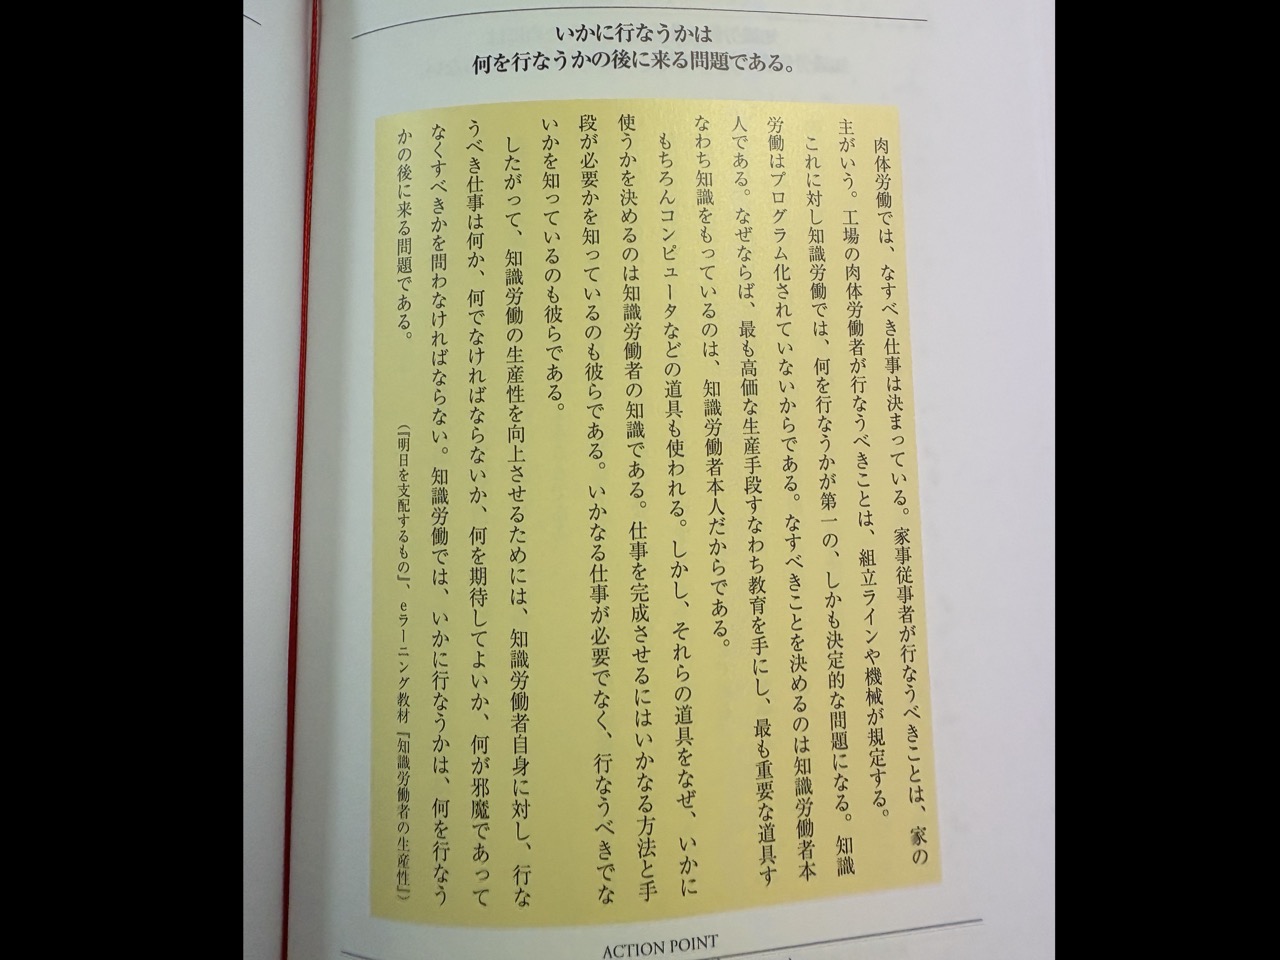 いかに行なうかは
何を行なうかの後に来る問題である。
肉体労働では、なすべき仕事は決まっている。家事従事者が行なうべきことは、家の
主がいう。工場の肉体労働者が行なうべきことは、組立ラインや機械が規定する。
これに対し知識労働では、何を行なうかが第一の、しかも決定的な問題になる。知識
労働はプログラム化されていないからである。なすべきことを決めるのは知識労働者本
人である。なぜならば、最も高価な生産手段すなわち教育を手にし、最も重要な道具す
なわち知識をもっているのは、知識労働者本人だからである。
もちろんコンピュータなどの道具も使われる。しかし、それらの道具をなぜ、いかに
使うかを決めるのは知識労働者の知識である。仕事を完成させるにはいかなる方法と手
段が必要かを知っているのも彼らである。いかなる仕事が必要でなく、行なうべきでな
いかを知っているのも彼らである。
したがって、知識労働の生産性を向上させるためには、知識労働者自身に対し、行な
うべき仕事は何か、何でなければならないか、何を期待してよいか、何が邪魔であって
なくすべきかを問わなければならない。知識労働では、いかに行なうかは、何を行なう
かの後に来る問題である。
（『明日を支配するもの』、eラーニング教材『知識労働者の生産性』）
ACTION POINT